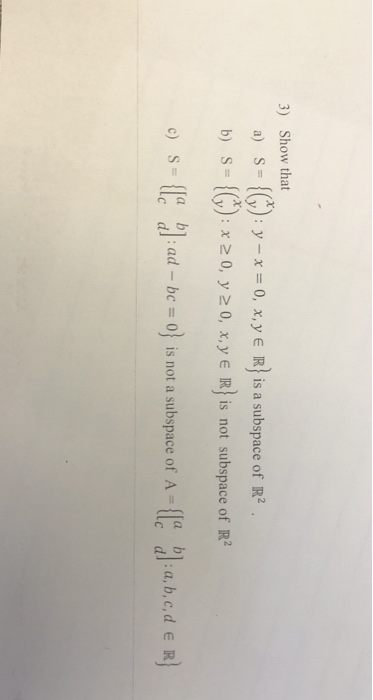 3) Show that
a) S = {(x y) : y − x = 0, x, y ∈ ℝ} is a subspace of ℝ² .
b) S = {(x y) : x ≥ 0, y ≥ 0, x, y ∈ ℝ} is not subspace of ℝ²
c) S = {[a b c d] : ad − bc = 0} is not a subspace of A = {[a b c d] : a, b, c, d ∈ ℝ}